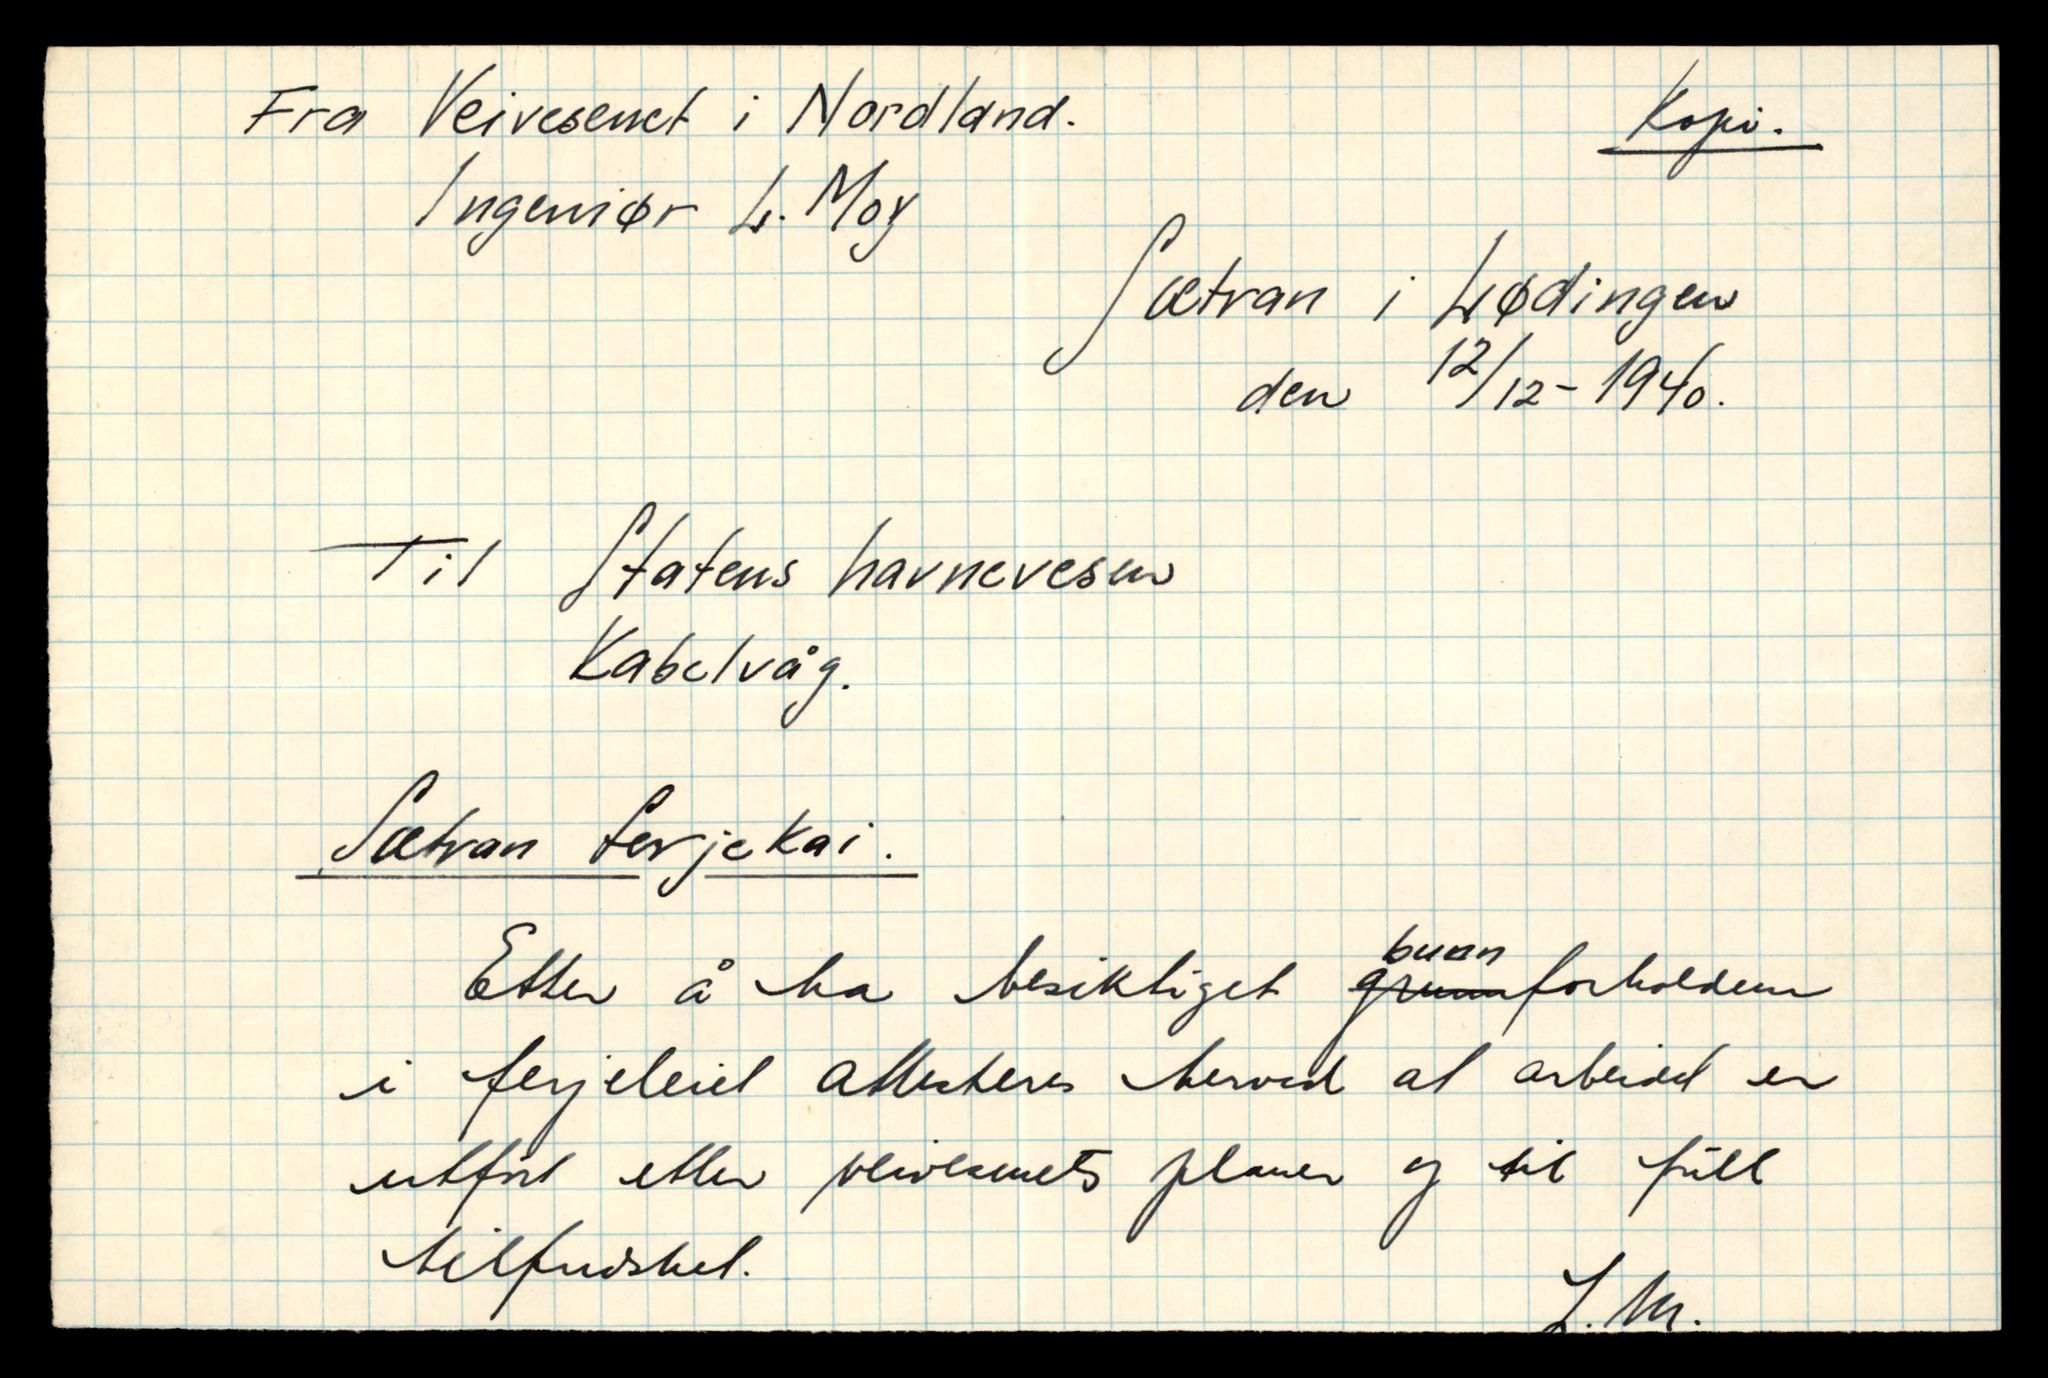 Fra Veivesenet i Nordland.
Kopi.
Ingeniør L. Moy
Sætran i Lødingen
den 12/12 - 1940.
Til Statens havnevesen
Kabelvåg.
Sætran ferjekai.
Etter å ha besiktiget grunn bunnforholdene
i ferjeleiet attesteres herved at arbeidet er
utført etter veivesenets planer og til full
tilfredshet.
L. M.